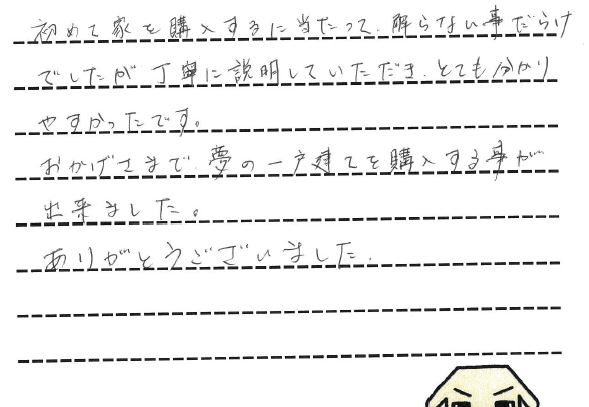 初めて家を購入するに当たって、解らない事だらけ
でしたが丁寧に説明していただき、とても分かり
やすかったです。
おかげさまで夢の一戸建てを購入する事が
出来ました。
ありがとうございました.